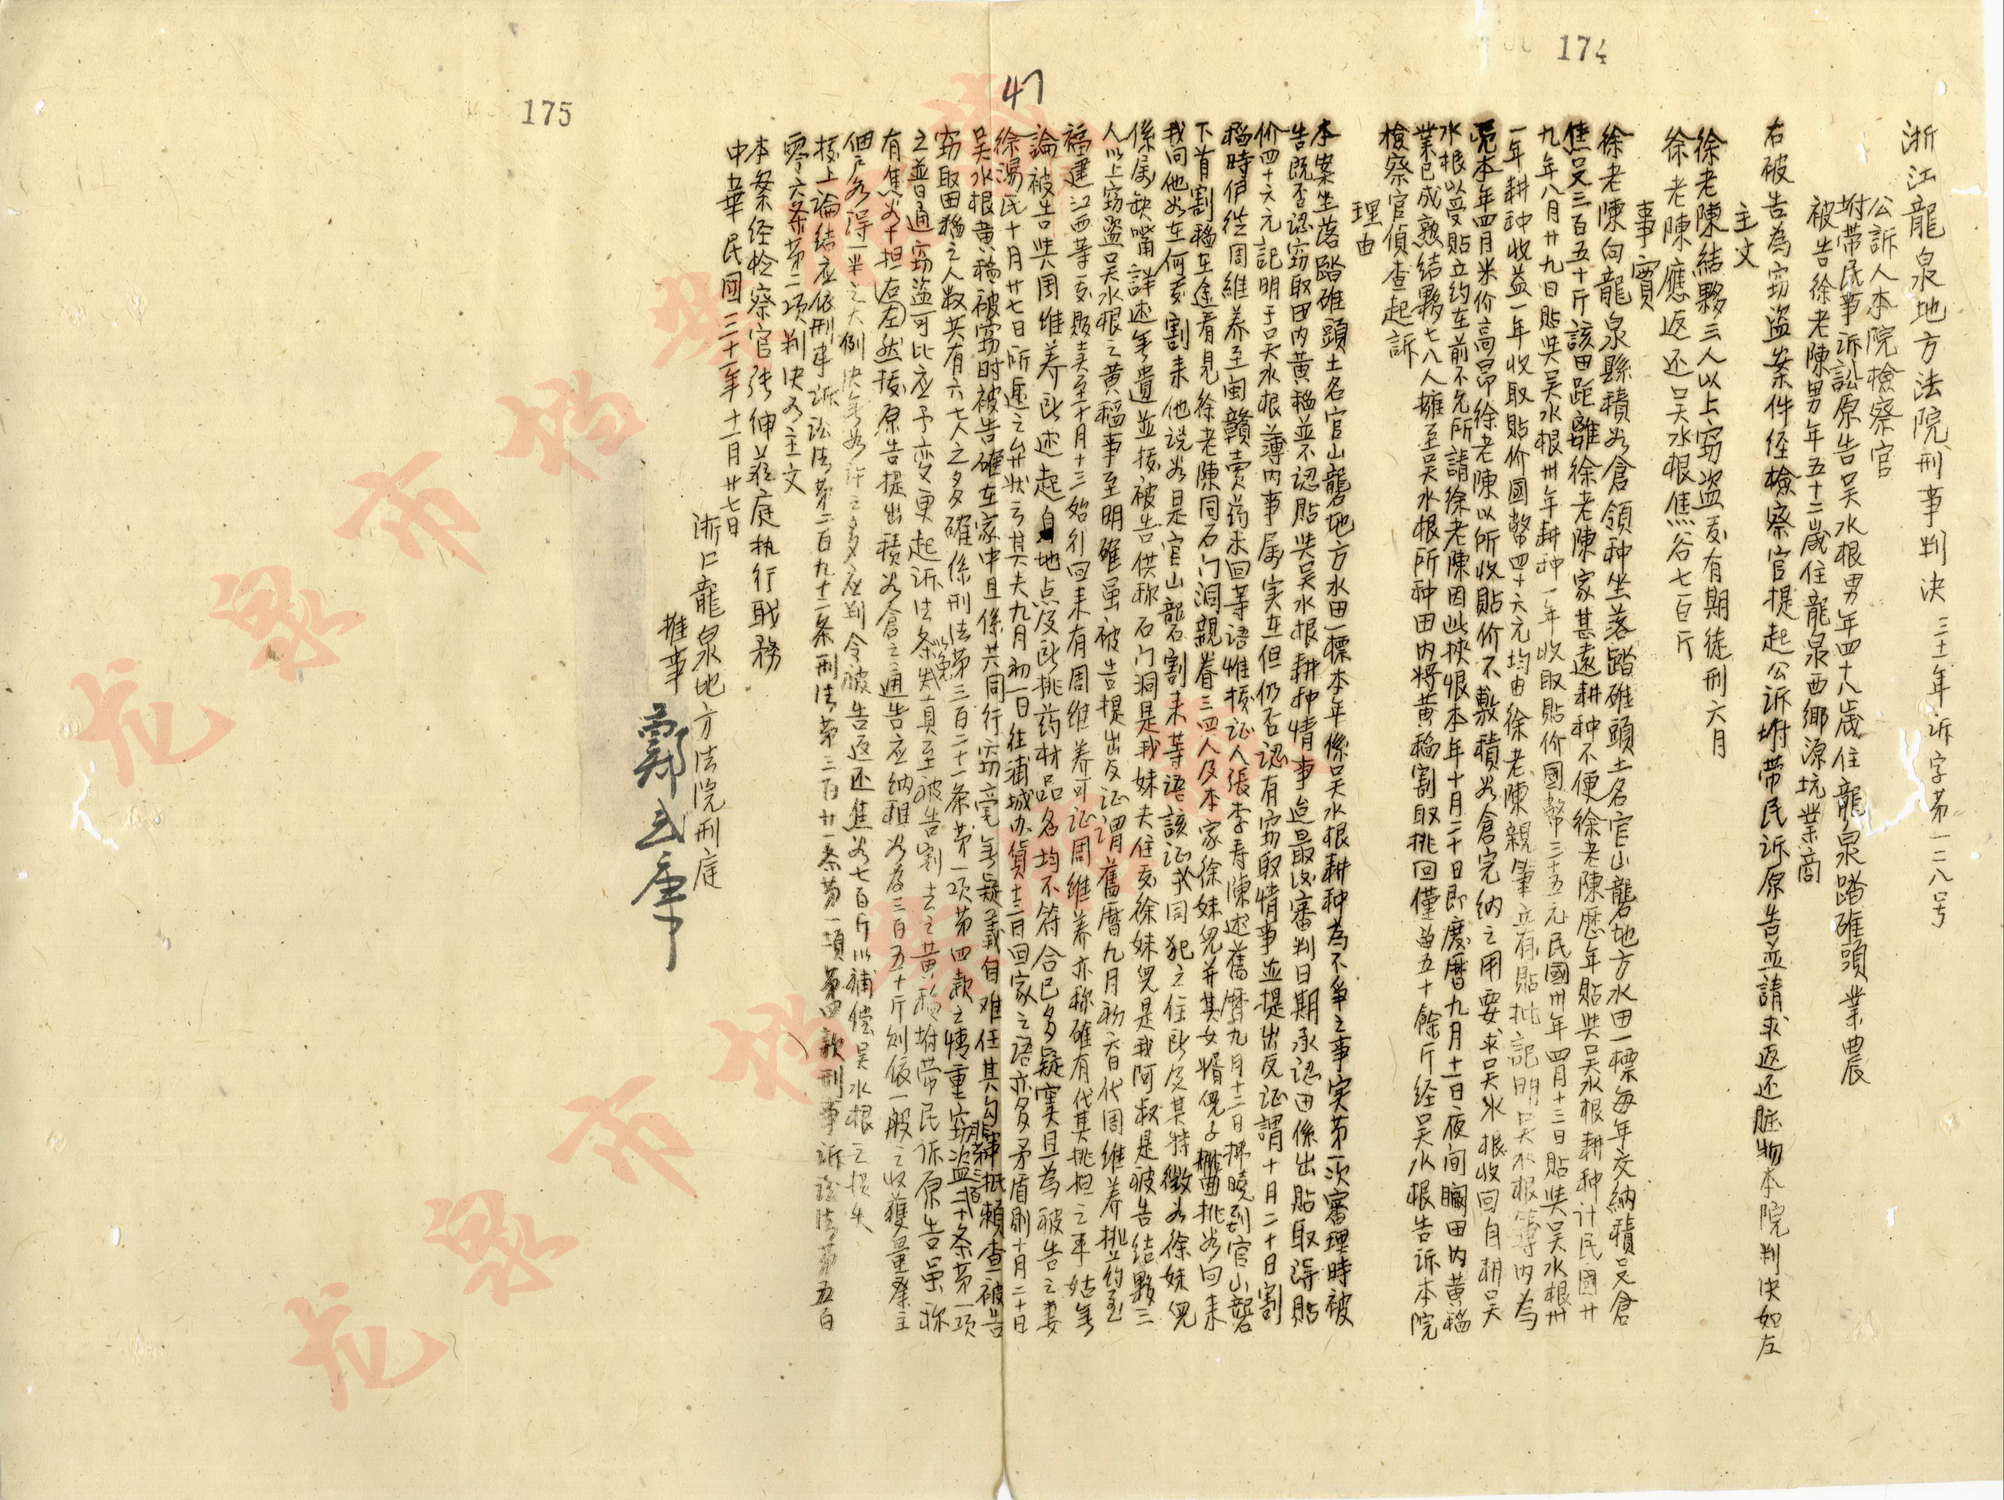 174
47
175
浙江龍泉地方法院刑事判决 三十一年訴字第一二八号
公訴人本院檢察官
坿带民事訴訟原告吳水根男年四十八歲住龍泉踏碓頭業農
被告徐老陳男年五十二歲住龍泉西鄉源坑業商
右被告為窃盗案件经檢察官提起公訴坿带民訴原告並請求返还賍物本院判决如左
主文
徐老陳結夥三人以上窃盗处有期徒刑六月
徐老陳應返还吴水根焦谷七百斤
事實
徐老陳向龍泉縣積谷倉領种坐落踏碓頭土名官山礱地方水田一標每年交納積谷倉
焦谷三百五十斤該田距離徐老陳家甚遠耕种不便徐老陳歷年貼與吴水根耕种计民國廿
九年八月廿九日貼與吴水根卅年耕种一年收取貼价國幣三十五元民國卅年四月十三日貼與吴水根卅
一年耕种收益一年收取貼价國幣四十六元均由徐老陳親筆立有貼批記明吴水根簿内為
凭本年四月米价高昂徐老陳以所收貼价不敷積谷倉完納之用要求吴水根收回自耕吴
水根以受貼立约在前不允所請徐老陳因此挾恨本年十月二十日即废曆九月十一日夜间瞷田内黄稻
業已成熟結夥七八人擁至吴水根所种田内将黄稻割取挑回僅留五十餘斤经吴水根告訴本院
檢察官偵查起訴
理由
本案坐落踏碓頭土名官山礱地方水田一標本年係吴水根耕种為不争之事实第一次審理時被
告既否認窃取田内黄稻並不認貼與吴水根耕种情事迨最後審判日期承認田係出貼取得貼
价四十六元記明于吴水根簿内事属实在但仍否認有窃取情事並提出反证謂十月二十日割
稻時伊從周维养至闽贛賣药未回等语惟核证人張李寿陳述舊曆九月十二日拂曉到官山礱
下首割稻在途看見徐老陳同石门洞親眷三四人及本家徐妹児并其女婿倪子 挑谷回来
我问他谷在何处割来他说谷是官山礱割来等语該证
係属缺嘴詳述無遺並核被告供称石门洞是我妹夫住处徐妹児是我阿叔是被告結夥三
人以上窃盗吴水根之黄稻事至明確虽被告提出反证謂舊曆九月初六日代周维养挑药至
福建江西等处販卖至十月十三始行回来有周维养可证周维养亦称確有代其挑担之事姑無
論被告與周维养所述起自地点及所挑药材品名均不符合已多疑竇且為被告之妻
徐湯氏十月廿七日所遞之弁状云其夫九月初一日往浦城办貨十三日回家之语亦多矛盾則十月二十日
吴水根黄稻被窃时被告確在家中且係共同行窃毫無疑義自难任其勾串抵賴查被告
窃取田稻之人数共有六七人之多確係刑法第三百二十一条第一项第四款之情重窃盗
之普通窃盗可比应予变更起訴法条以免失真至被告割去之黄稻坿带民訴原告虽称
有焦谷十担左右然核原告提出積谷倉之通告应納租谷為三百五十斤则依一般之收獲量業主
佃户各得一半之大例决無如许之多应判令被告返还焦谷七百斤以補偿吴水根之损失
據上論結应依刑事訴訟法第二百九十二条刑法第三百廿一条第一項第四款刑事訴訟法第五百
零六条第二项判决如主文
本案经检察官張伸莅庭执行职務
中華民國三十一年十一月廿七日
浙江龍泉地方法院刑庭
推事
龙泉市档案馆
龙泉市档案馆藏